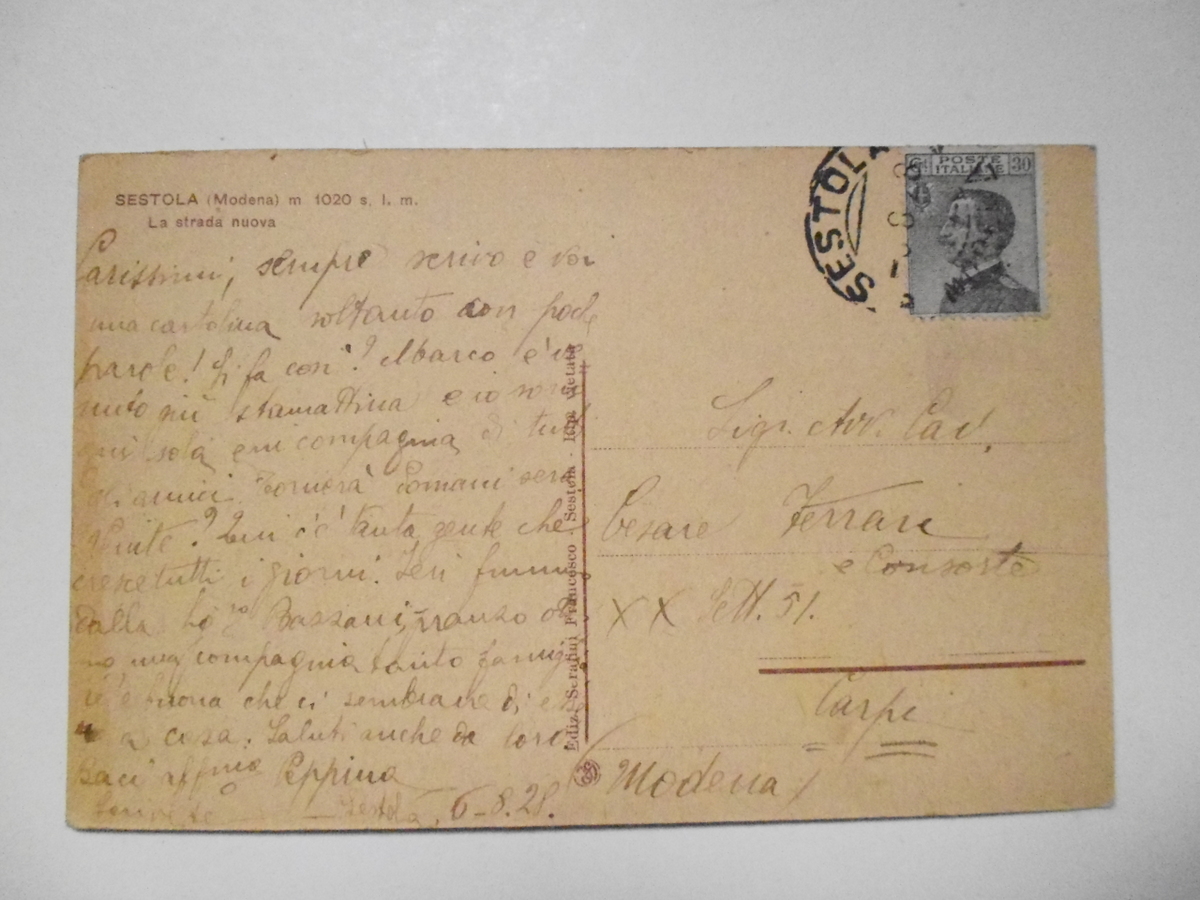 SESTOLA (Modena) m 1020 s. l. m.
La strada nuova
Carissimi, sempre scrivo a voi
una cartolina soltanto con poche
parole! Si fa così? Marco è ve
nuto stamattina e io sono
qui sola e in compagnia di tutti
gli amici. Tornerà domani sera
Venite? Qui c'è tanta gente che
cresce tutti i giorni. Ieri fummo
dalla Bazzani, pranzo
compagnia tanto
buona che ci sembrava di
a casa. Saluti anche da loro
Baci aff.ma Peppina
Sestola, 6-8.28.
Ediz. Serafini Francesco - Sestola - Ripr. vietata
SESTOLA
POSTE
ITALIANE
Ct. 30
Sigi. Avv. Cav.
Cesare Ferrari
e Consorte
XX Sett. 51.
Carpi
(Modena)